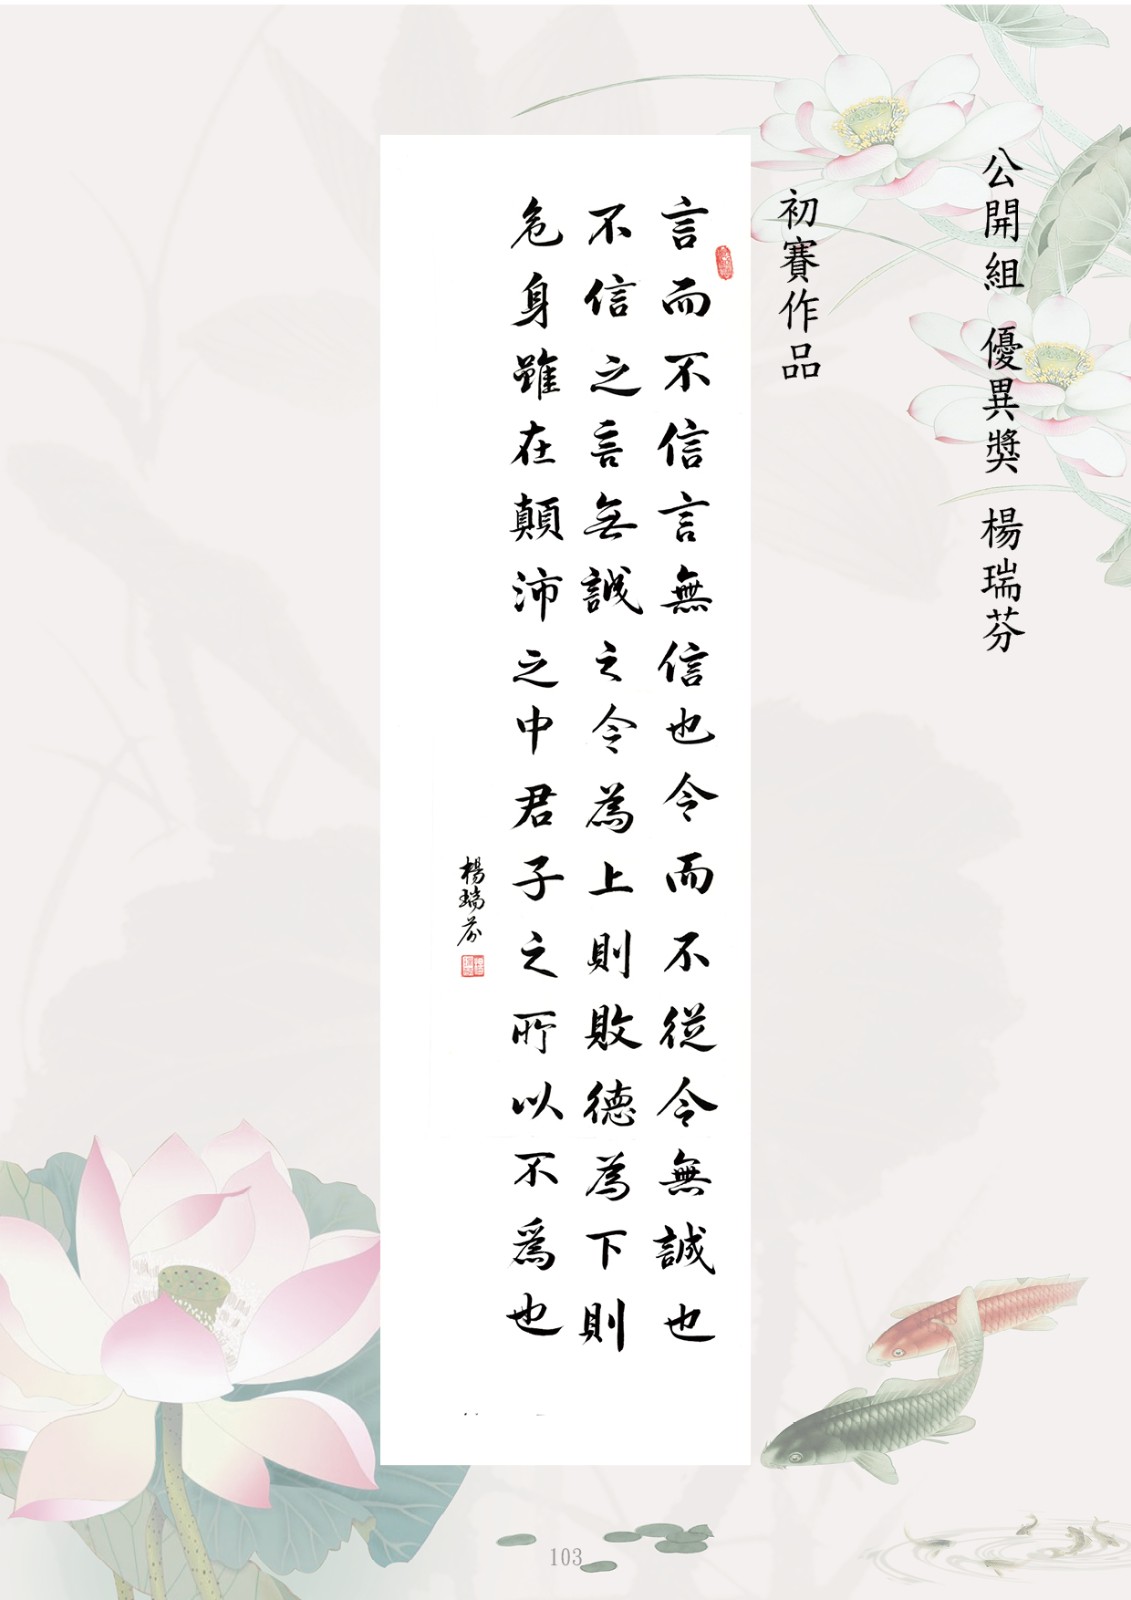 公開組 優異獎 楊瑞芬
初賽作品
言而不信言無信也令而不從令無誠也
不信之言無誠之令為上則敗德為下則
危身雖在顛沛之中君子之所以不為也
楊瑞芬
103